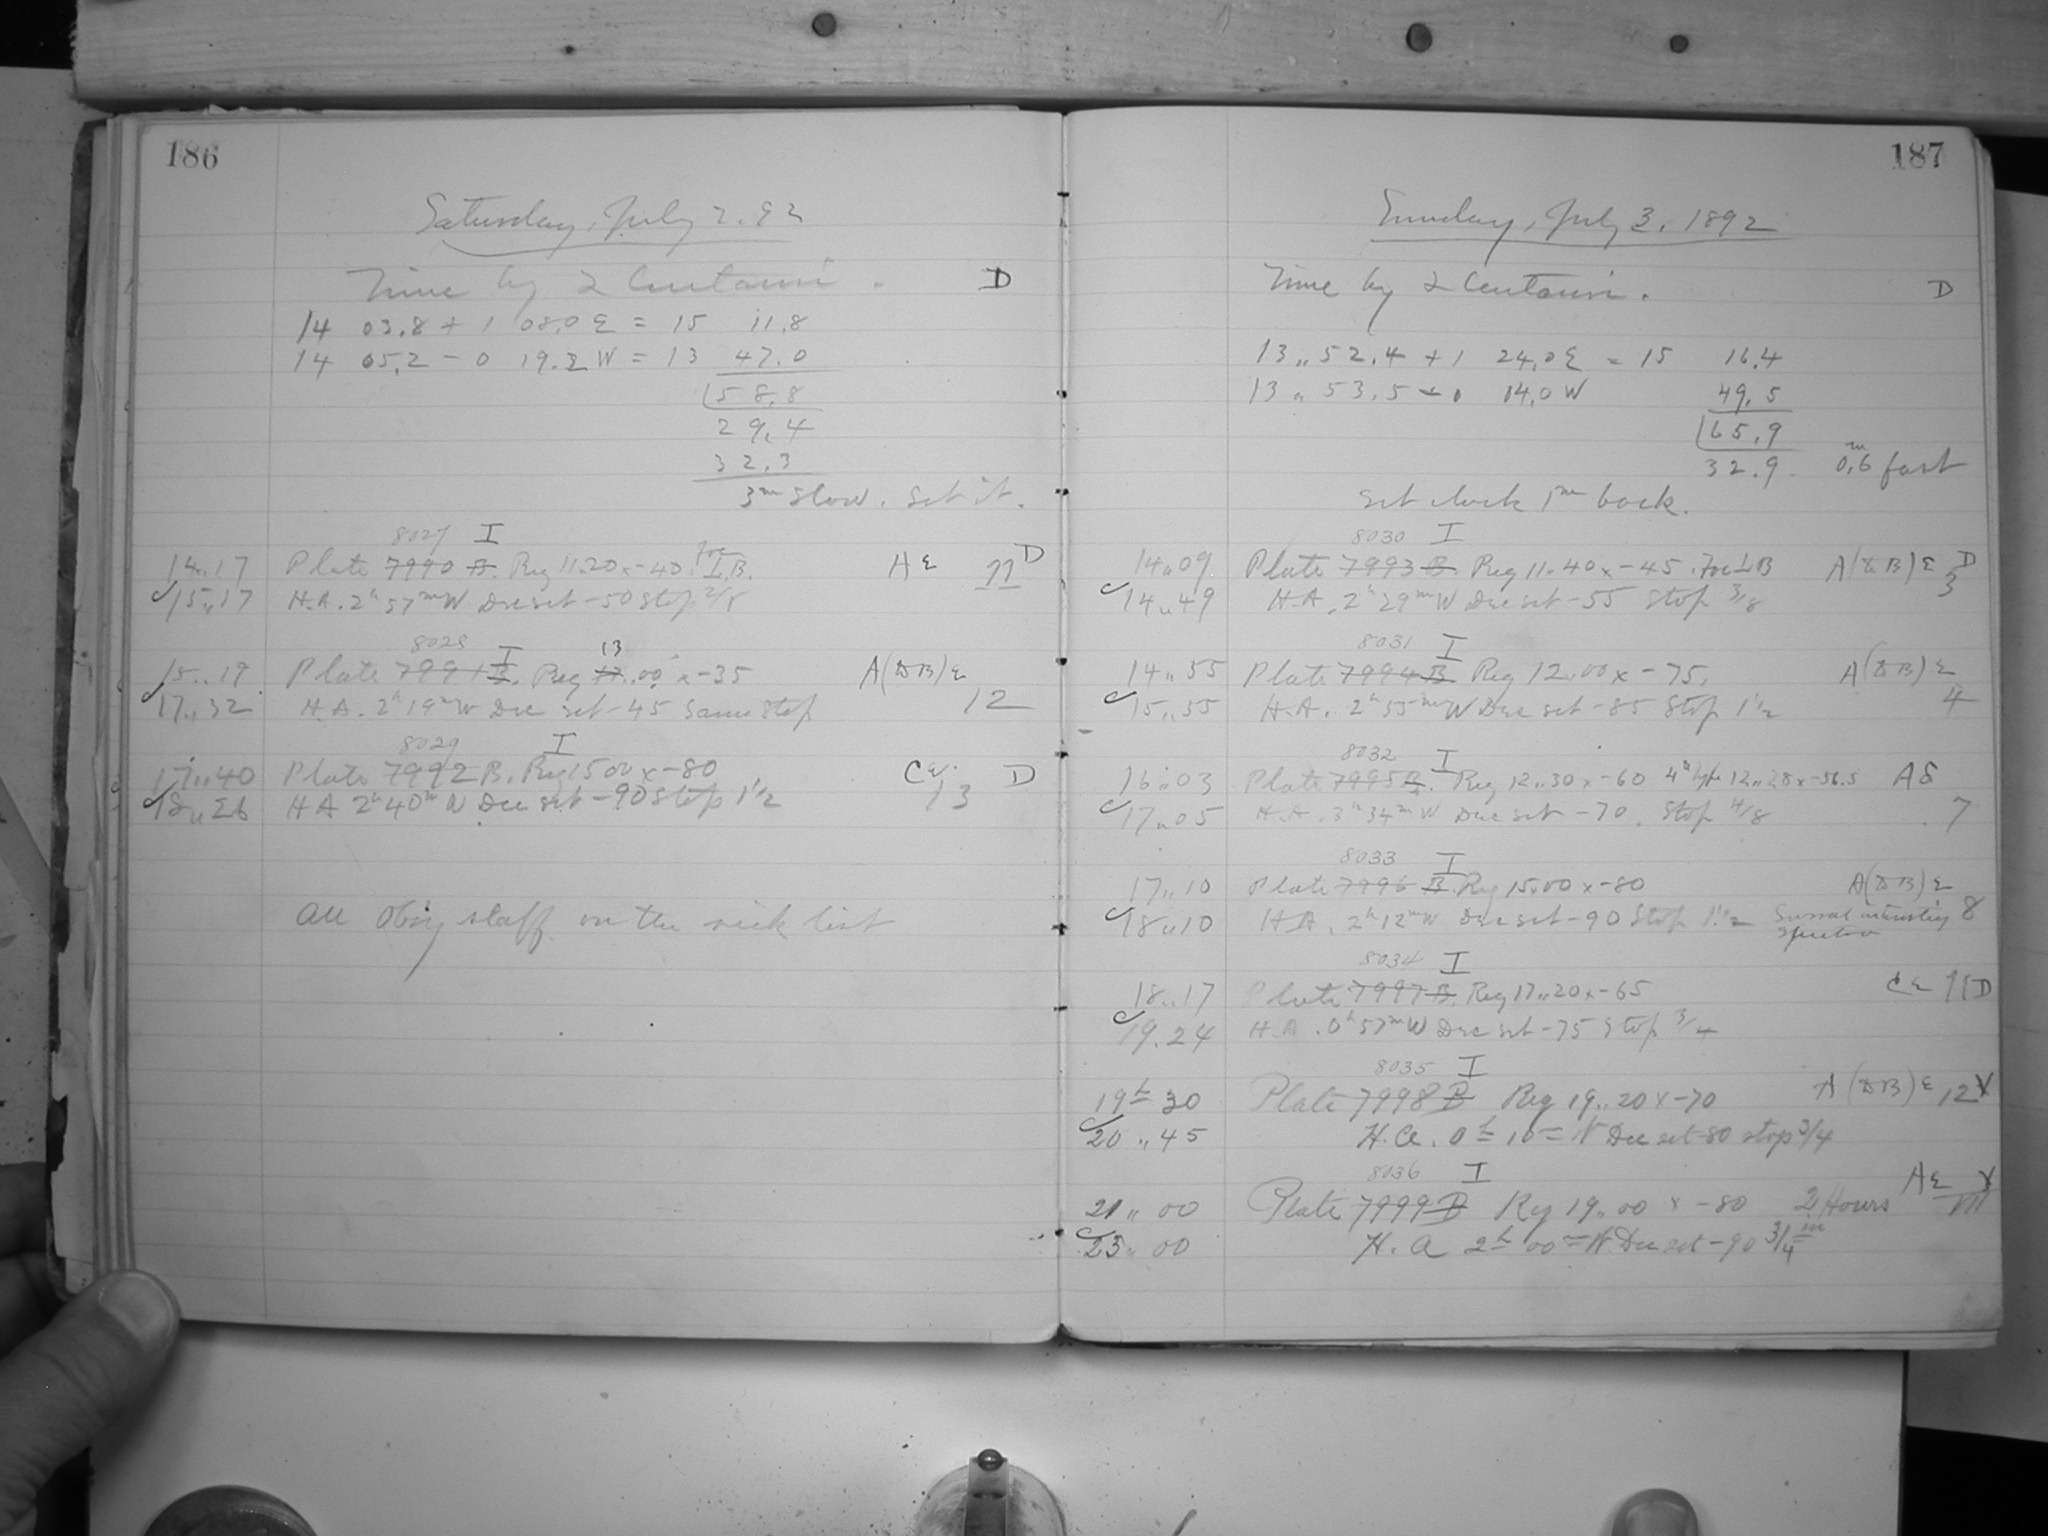 186
Saturday, July 2. 92
Time by α Centauri. D
14 03.8 + 1 08.0 E = 15 11.8
14 05.2 - 0 19.2 W = 13 47.0
58.8
29.4
32.3
3m slow. Set it.
8027 I
14..17 Plate 7990 B. Reg 11..20 x -40. I.B. AE D
15..17 H.A. 2h 57m W Dec set -50 Stop 2/8 11
8028 I 13
15..19 Plate 7991 B. Reg 00 x -35 A(DB)E
17..32 H.A. 2h 19m W Dec set -45 Same Stop 12
8029 I
17..40 Plate 7992 B. Reg 15 00 x -80 CE. D
18.. H A 2h 40m W Dec set -90 Stop 1 1/2 13
All obsg staff on the sick list
187
Sunday, July 3, 1892
Time by α Centauri. D
13..52.4 + 1 24.0 E = 15 16.4
13..53.5 - 0 14.0 W 49.5
65.9
32.9. 0m.6 fast
Set clock 1m back.
8030 I
14..09 Plate 7993 B. Reg 11..40 x -45. For I B A(DB)E D
14..49 H.A. 2h 29m W Dec set -55 Stop 3/8 3
8031 I
14..55 Plate 7994 B Reg 12..00 x -75. A(DB)E
15..55 H.A. 2h 55m W Dec set -85 Stop 1 1/2 4
8032 I
16..03 Plate 7995 B. Reg 12..30 x -60 4th type 12..28 x -56.5 AE
17..05 H.A. 3h 34m W Dec set -70. Stop 4/8 7
8033 I
17..10 Plate 7996 B. Reg 15.00 x -80 A(DB)E
18..10 H A. 2h 12m W Dec set -90 Stop 1 1/2 Several interesting 8
spectra
8034 I
18..17 Plate 7997 B. Reg 17..20 x -65 CE 11 D
19.24 H.A. 0h 57m W Dec set -75 Stop 3/4
8035 I
19h 30 Plate 7998 B Reg 19..20 x -70 A(DB)E 12 X
20..45 H.A. 0h 10m W Dec set -80 stop 3/4
8036 I
21..00 Plate 7999 B Reg 19..00 x -80 2 Hours AE X
23..00 H.A 2h 00m W Dec set -90 3/4 in